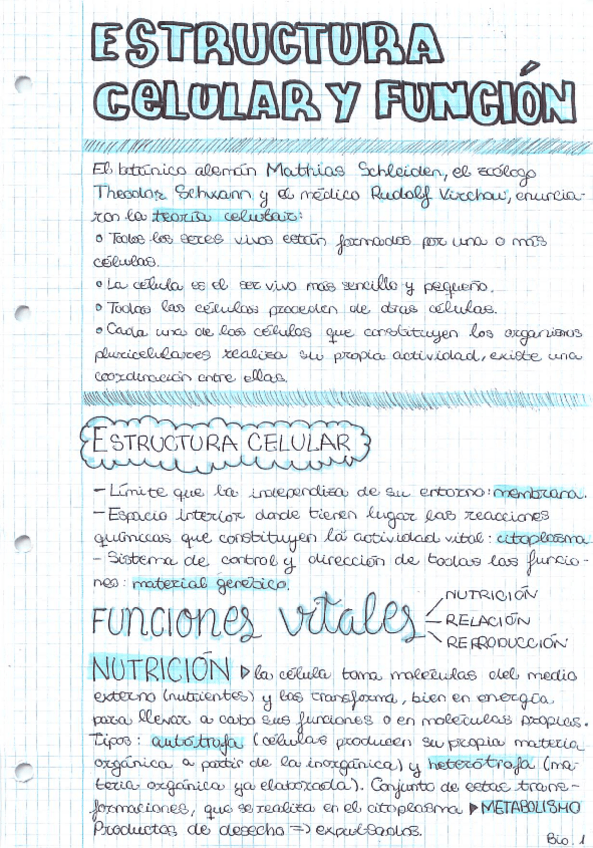 ESTRUCTURA
CELULAR Y FUNCIÓN
El botánico alemán Mathias Schleiden, el zoólogo
Theodor Schwann y el médico Rudolf Virchow, enuncia-
ron la teoría celular:
• Todos los seres vivos están formados por una o más
células.
• La célula es el ser vivo más sencillo y pequeño.
• Todas las células proceden de otras células.
• Cada una de las células que constituyen los organismos
pluricelulares realiza su propia actividad, existe una
coordinación entre ellas.
ESTRUCTURA CELULAR
- Límite que la independiza de su entorno: membrana.
- Espacio interior donde tienen lugar las reacciones
químicas que constituyen la actividad vital: citoplasma
- Sistema de control y dirección de todas las funcio-
nes: material genético.
FUNCIONES vitales
NUTRICIÓN
RELACIÓN
REPRODUCCIÓN
NUTRICIÓN ▷ la célula toma moléculas del medio
externo (nutrientes) y las transforma, bien en energía
para llevar a cabo sus funciones o en moléculas propias.
Tipos: autótrofa (células producen su propia materia
orgánica a partir de la inorgánica) y heterótrofa (ma-
teria orgánica ya elaborada). Conjunto de estas trans-
formaciones, que se realiza en el citoplasma ▷ METABOLISMO
Productos de desecho => expulsados.
Bio. 1